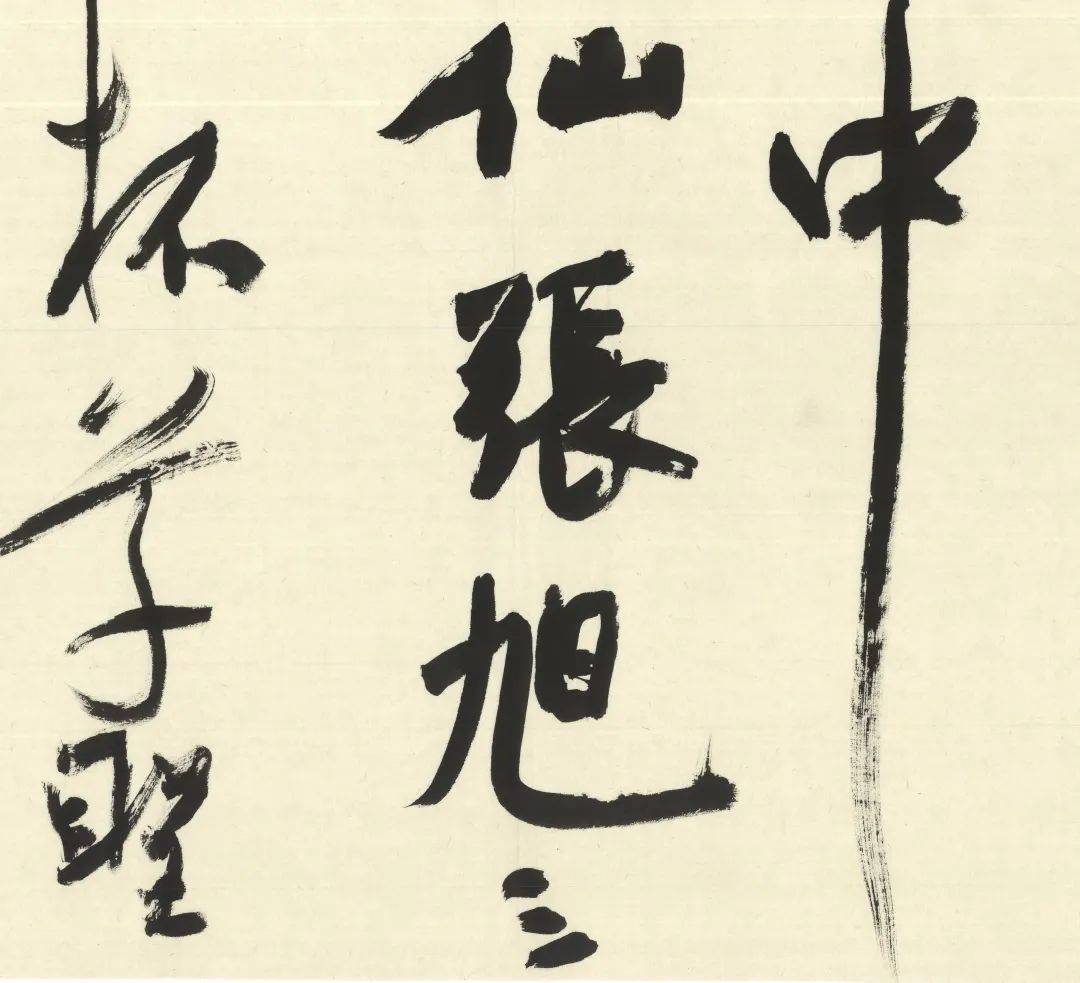 中
仙張旭三
杯草聖